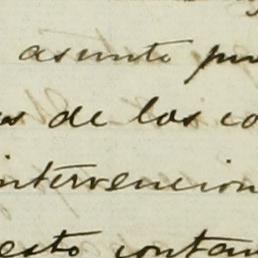 asunto
de los
intervencion
esto contan